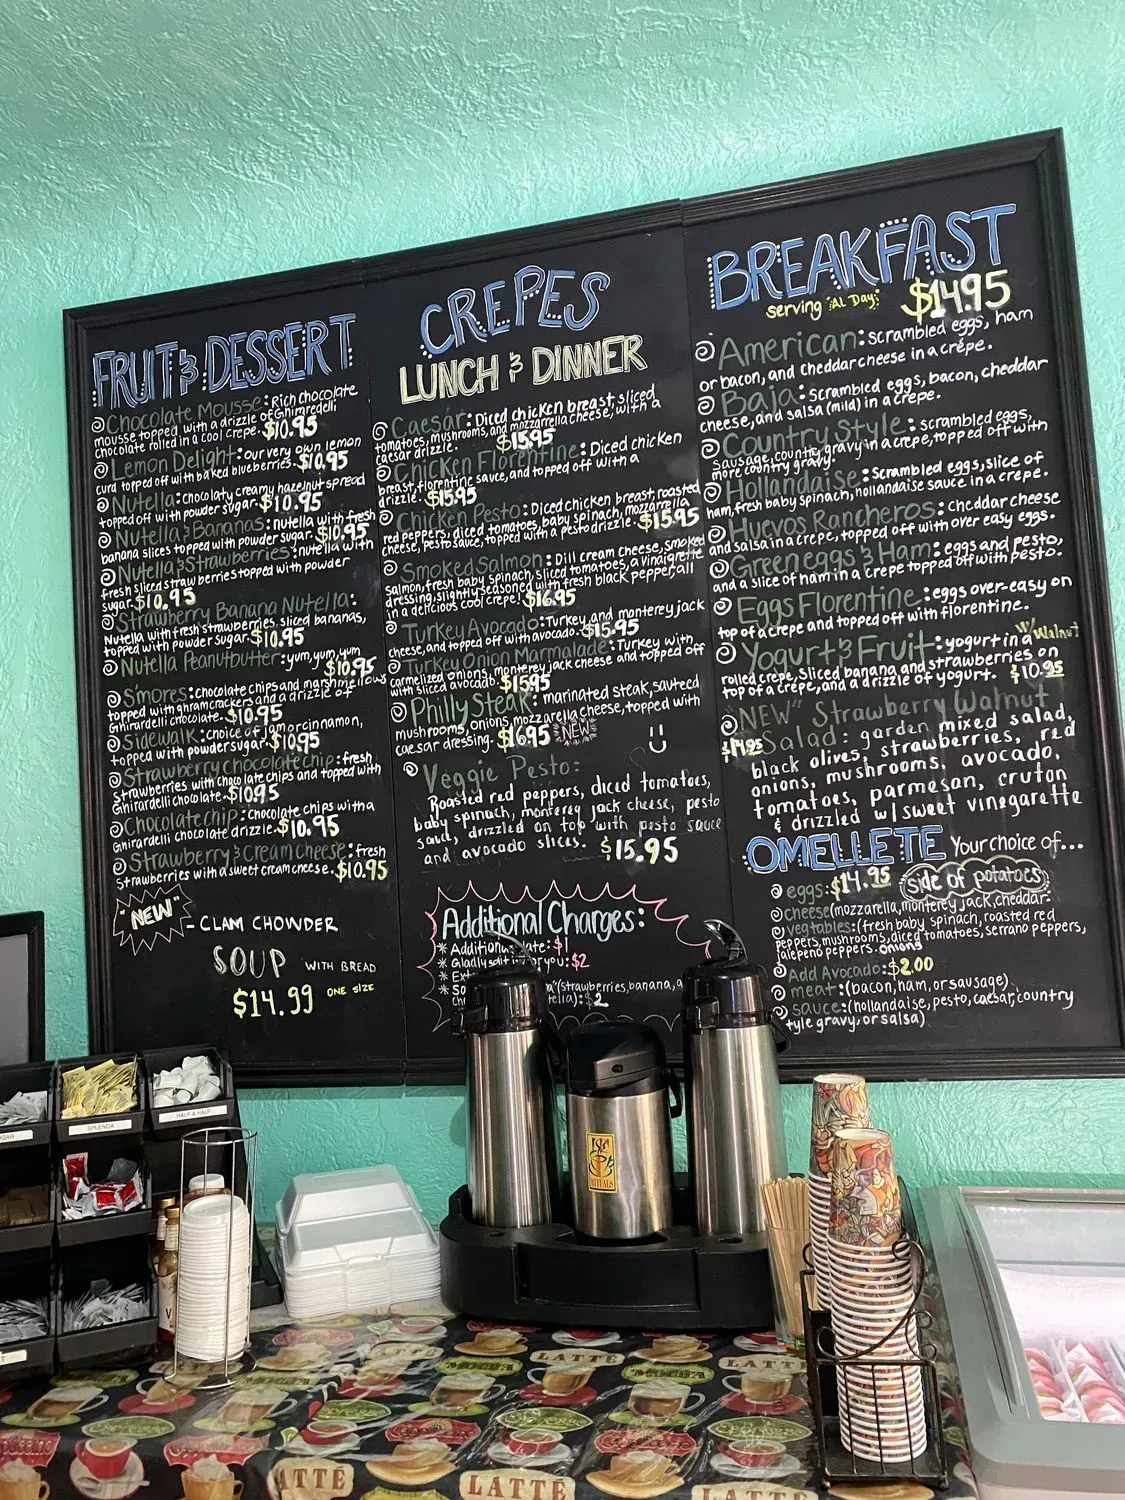 FRUIT & DESSERT
Chocolate Mousse: Rich chocolate
mousse topped with a drizzle of Ghimredelli
chocolate rolled in a cool crepe. $10.95
Lemon Delight: our very own lemon
curd torped off with baked blueberries. $10.95
Nutella: chocolaty creamy hazelnut spread
topped off with powder sugar. $10.95
Nutella & Bananas: nutella with fresh
banana slices topped with powder sugar. $10.95
Nutella & Strawberries: nutella with
fresh sliced strawberries topped with powder
sugar. $10.95
Strawberry Banana Nutella:
Nutella with fresh strawberries, sliced bananas,
topped with powder sugar. $10.95
Nutella Peanutbutter: yum, yum, yum
$10.95
S'mores: chocolate chips and marshmellows
topped with ghramcrackers and a drizzle of
Ghirardelli chocolate. $10.95
Sidewalk: choice of jam or cinnamon,
topped with powder sugar. $10.95
Strawberry chocolate chip: fresh
strawberries with chocolate chips and topped with
Ghirardelli chocolate. $10.95
Chocolate chip: chocolate chips with a
Ghirardelli chocolate drizzle. $10.95
Strawberry & Cream Cheese: fresh
strawberries with a sweet cream cheese. $10.95
"NEW"
- CLAM CHOWDER
SOUP WITH BREAD
$14.99 ONE SIZE
CREPES
LUNCH & DINNER
Caesar: Diced chicken breast, sliced
tomatoes, mushrooms, and mozzarella cheese, with a
caesar drizzle. $15.95
Chicken Florentine: Diced chicken
breast, florentine sauce, and topped off with a
drizzle. $15.95
Chicken Pesto: Diced chicken breast, roasted
red peppers, diced tomatoes, baby spinach, mozzarella
cheese, pesto sauce, topped with a pesto drizzle. $15.95
Smoked Salmon: Dill cream cheese, smoked
salmon, fresh baby spinach, sliced tomatoes, a vinaigrette
dressing, slightly seasoned with fresh black pepper, all
in a delicious cool crepe! $16.95
Turkey Avocado: Turkey and monterey jack
cheese, and topped off with avocado. $15.95
Turkey Onion Marmalade: Turkey with
carmelized onions, monterey jack cheese and topped off
with sliced avocado. $15.95
Philly Steak: marinated steak, sauteed
mushrooms, onions, mozzarella cheese, topped with
caesar dressing. $16.95 "NEW"
Veggie Pesto:
Roasted red peppers, diced tomatoes,
baby spinach, monterey jack cheese, pesto
sauce, drizzled on top with pesto sauce
and avocado slices. $15.95
Additional Charges:
* Additional plate: $1
* Gladly split it for you: $2
* Ext
* So (strawberries, banana, a
ch tella): $2
BREAKFAST
serving Al Day: $14.95
American: scrambled eggs, ham
or bacon, and cheddar cheese in a crêpe.
Baja: Scrambled eggs, bacon, cheddar
cheese, and salsa (mild) in a crepe.
Country Style: scrambled eggs,
sausage, country gravy in a crepe, topped off with
more country gravy.
Hollandaise: Scrambled eggs, slice of
ham, fresh baby spinach, hollandaise sauce in a crepe.
Huevos Rancheros: Cheddar cheese
and salsa in a crepe, topped off with over easy eggs.
Green eggs & Ham: eggs and pesto,
and a slice of ham in a crepe topped off with pesto.
Eggs Florentine: eggs over-easy on
top of a crepe and topped off with florentine.
Yogurt & Fruit: yogurt in a w/ Walnut
rolled crepe, Sliced banana and strawberries on
top of a crepe, and a drizzle of yogurt. $10.95
"NEW" Strawberry Walnut
$14.95 Salad: garden mixed salad,
black olives, strawberries, red
onions, mushrooms, avocado,
tomatoes, parmesan, cruton
& drizzled w/ sweet vinegarette
OMELLETE Your choice of...
eggs: $14.95 side of potatoes
cheese (mozzarella, monterey jack, cheddar.
vegtables: (fresh baby spinach, roasted red
peppers, mushrooms, diced tomatoes, serrano peppers,
jalepeno peppers. onions
Add Avocado: $2.00
meat: (bacon, ham, or sausage)
sauce: (hollandaise, pesto, caesar, country
style gravy, or salsa)
SPLENDA
HALF & HALF
RITUALS
LATTE
LATTE
LATTE
LATTE